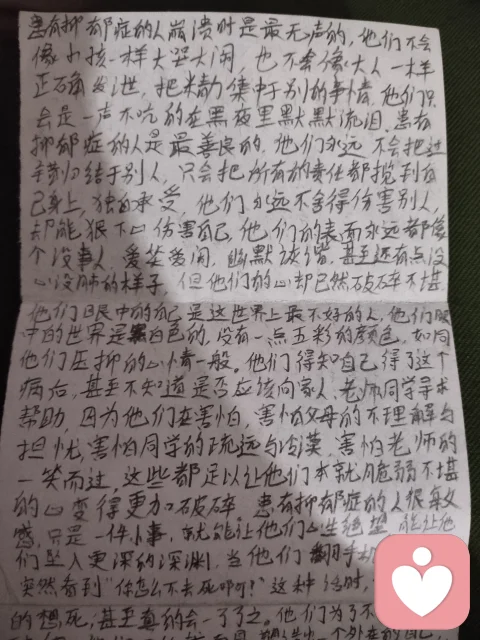 患有抑郁症的人崩溃时是最无声的，他们不会
像小孩一样大哭大闹，也不会像大人一样
正确发泄，把精力集中于别的事情，他们只
会是一声不吭的在黑夜里默默流泪，患有
抑郁症的人是最善良的，他们永远不会把过
错归结于别人，只会把所有的责任都揽到自
己身上，独自承受，他们永远不舍得伤害别人，
却能狠下心伤害自己，他们的表面永远都像
个没事人，爱笑爱闹，幽默诙谐，甚至还有点没
心没肺的样子，但他们的心却已然破碎不堪，
他们眼中的自己是这世界上最不好的人，他们眼
中的世界是黑白色的，没有一点五彩的颜色，如同
他们压抑的心情一般。他们得知自己得了这个
病后，甚至不知道是否应该向家人、老师同学寻求
帮助，因为他们在害怕，害怕父母的不理解与
担忧，害怕同学的疏远与冷漠，害怕老师的
一笑而过，这些都足以让他们本就脆弱不堪
的心变得更加破碎，患有抑郁症的人很敏
感，只是一件小事，就能让他们心生绝望，能让他
们坠入更深的深渊，当他们翻手机
突然看到“你怎么不去死啊？”这种话时，
的想死，甚至真的会一了了之。他们为了不